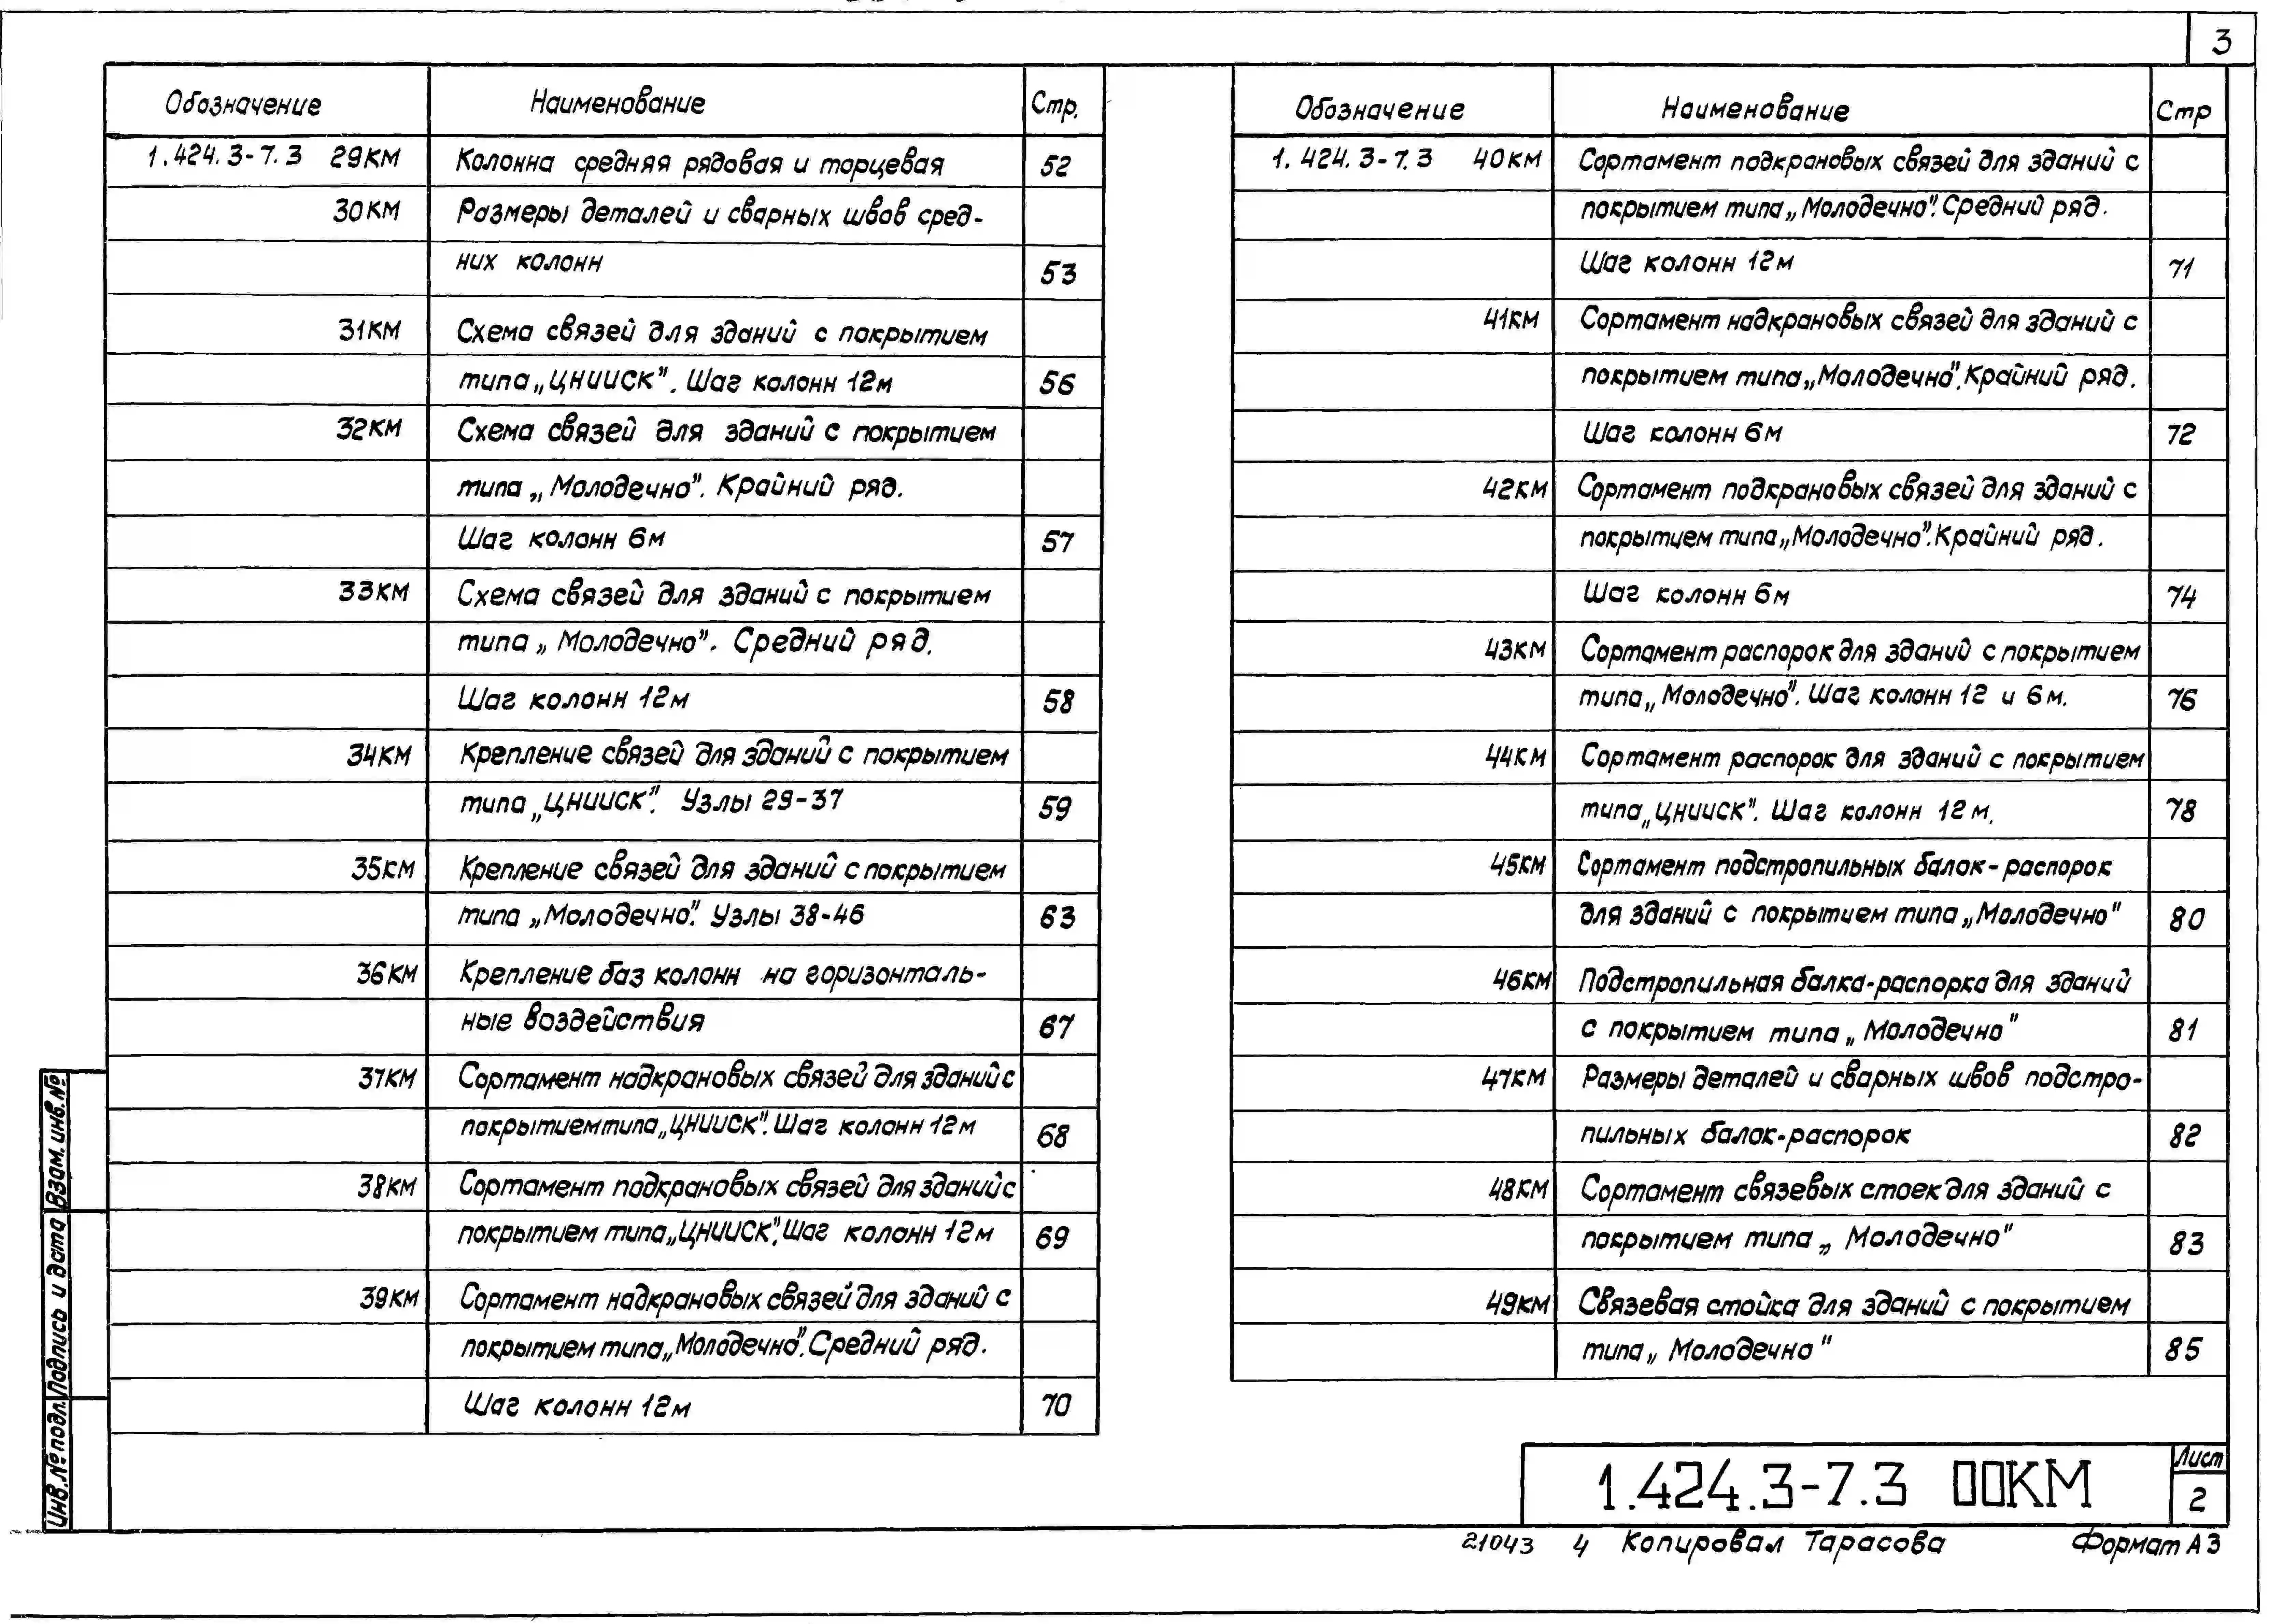 3
Обозначение Наименование Стр.
1.424.3-7.3 29КМ Колонна средняя рядовая и торцевая 52
30КМ Размеры деталей и сварных швов сред-
них колонн 53
31КМ Схема связей для зданий с покрытием
типа „ЦНИИСК". Шаг колонн 12м 56
32КМ Схема связей для зданий с покрытием
типа „Молодечно". Крайний ряд.
Шаг колонн 6м 57
33КМ Схема связей для зданий с покрытием
типа „Молодечно". Средний ряд.
Шаг колонн 12м 58
34КМ Крепление связей для зданий с покрытием
типа „ЦНИИСК". Узлы 29-37 59
35КМ Крепление связей для зданий с покрытием
типа „Молодечно". Узлы 38-46 63
36КМ Крепление баз колонн на горизонталь-
ные воздействия 67
37КМ Сортамент надкрановых связей для зданий с
покрытием типа „ЦНИИСК". Шаг колонн 12м 68
38КМ Сортамент подкрановых связей для зданий с
покрытием типа „ЦНИИСК". Шаг колонн 12м 69
39КМ Сортамент надкрановых связей для зданий с
покрытием типа „Молодечно". Средний ряд.
Шаг колонн 12м 70
Обозначение Наименование Стр
1.424.3-7.3 40КМ Сортамент подкрановых связей для зданий с
покрытием типа „Молодечно". Средний ряд.
Шаг колонн 12м 71
41КМ Сортамент надкрановых связей для зданий с
покрытием типа „Молодечно". Крайний ряд.
Шаг колонн 6м 72
42КМ Сортамент подкрановых связей для зданий с
покрытием типа „Молодечно". Крайний ряд.
Шаг колонн 6м 74
43КМ Сортамент распорок для зданий с покрытием
типа „Молодечно". Шаг колонн 12 и 6м. 76
44КМ Сортамент распорок для зданий с покрытием
типа „ЦНИИСК". Шаг колонн 12м. 78
45КМ Сортамент подстропильных балок-распорок
для зданий с покрытием типа „Молодечно" 80
46КМ Подстропильная балка-распорка для зданий
с покрытием типа „Молодечно" 81
47КМ Размеры деталей и сварных швов подстро-
пильных балок-распорок 82
48КМ Сортамент связевых стоек для зданий с
покрытием типа „Молодечно" 83
49КМ Связевая стойка для зданий с покрытием
типа „Молодечно" 85
Инв.№ подл. Подпись и дата Взам. инв.№
1.424.3-7.3 00КМ
Лист
2
21043 4 Копировал Тарасова Формат А3